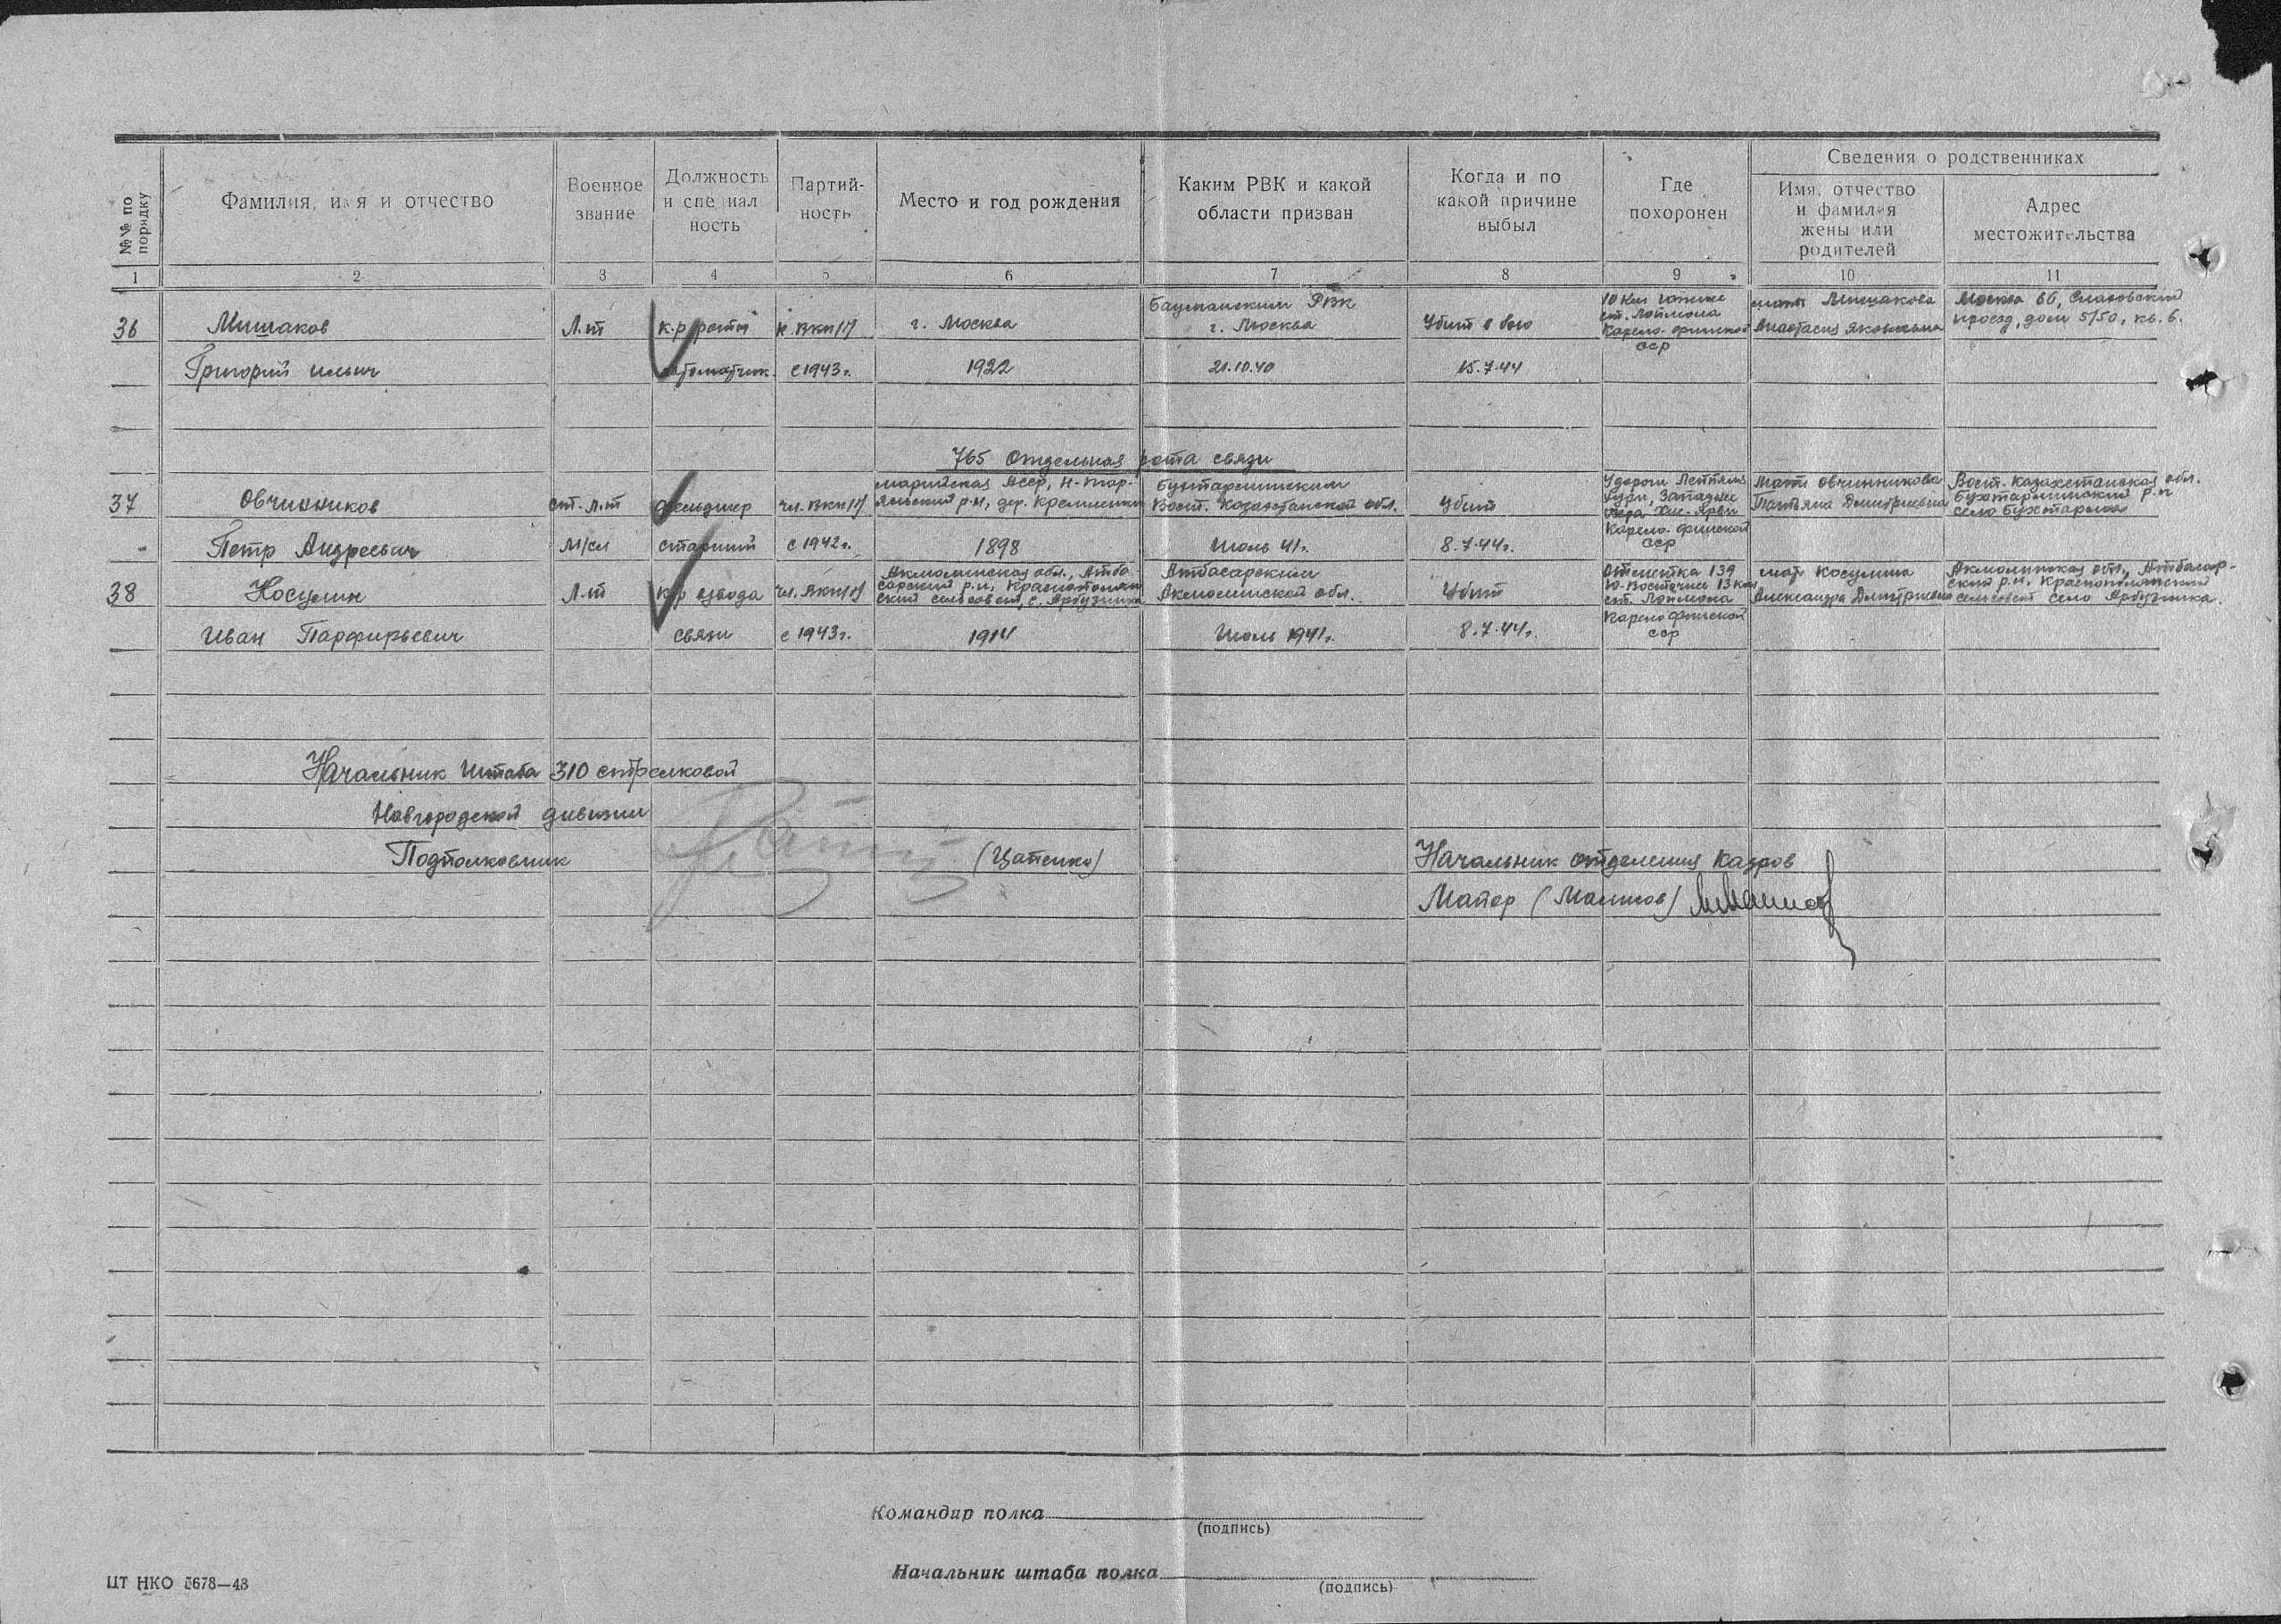 №№ по порядку
Фамилия, имя и отчество
Военное звание
Должность и специальность
Партийность
Место и год рождения
Каким РВК и какой области призван
Когда и по какой причине выбыл
Где похоронен
Сведения о родственниках
Имя, отчество и фамилия жены или родителей
Адрес местожительства
1 2 3 4 5 6 7 8 9 10 11
36 Мишаков Л-т к-р роты к. ВКП/б/ г. Москва Бауманским РВК г. Москва Убит в бою 10 км ст. Лоймола Карело-финской ССР мать Мишакова Анастасия Яковлевна Москва 66, проезд, дом 5/50, кв. 6.
Григорий Ильич автоматчик. с 1943 г. 1922 21.10.40 15.7.44
765 Отдельная рота связи
37 Овчинников ст. л-т фельдшер чл. ВКП/б/ Марийская АССР, Н-Тор-
яльский р-н, дер. Бухтарминским Вост. Казахстанской обл. Убит У дороги Западнее Карело-финской ССР Мать Овчинникова Татьяна Дмитриевна Вост. Казахстанская обл. Бухтарминский р-н село Бухтарма
Петр Андреевич м/сл старший с 1942 г. 1898 Июль 41 г. 8.7.44 г.
38 Косулин Л-т к-р взвода чл. ВКП/б/ Акмолинская обл., Атба-
сарский р-н, сельсовет, с. Арбузинка Атбасарским Акмолинской обл. Убит Отметка 139 Ю-Восточнее 13 км ст. Лоймола Карело финской ССР мать Косулина Александра Дмитриевна Акмолинская обл., Атбасар-
ский р-н, сельсовет село Арбузинка.
Иван Парфирьевич связи с 1943 г. 1914 Июль 1941 г. 8.7.44 г.
Начальник штаба 310 стрелковой
Новгородской дивизии
Подполковник (Цапенко)
Начальник отделения кадров
Майор
Командир полка
(подпись)
Начальник штаба полка
(подпись)
ЦТ НКО 5678—43